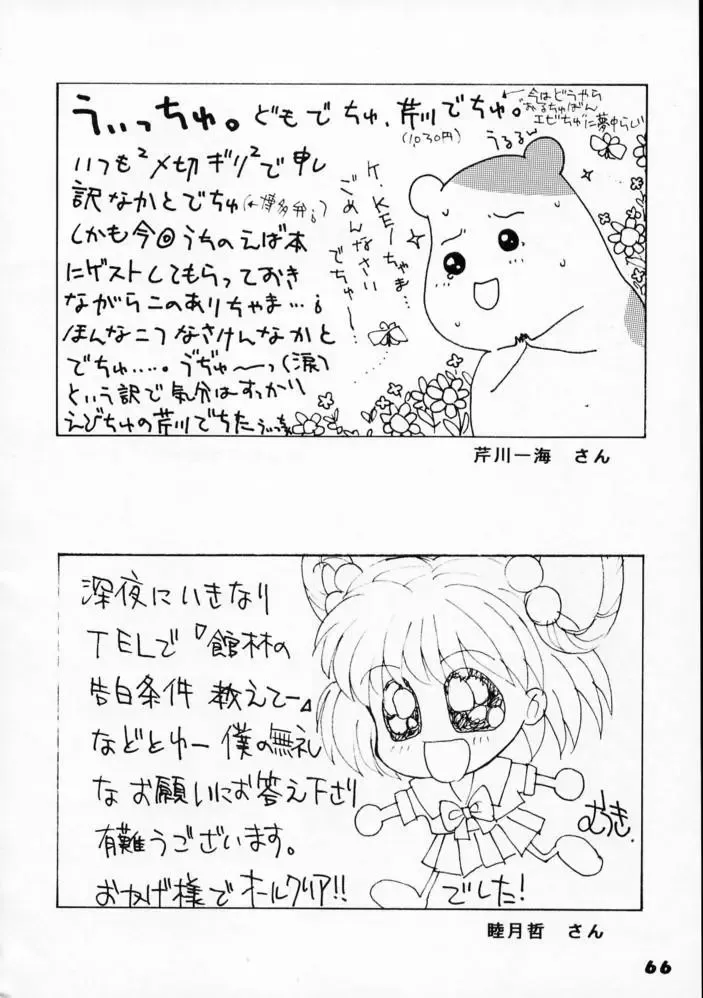 うぃっちゅ。どもでちゅ、芹川でちゅ。
(1,030円)
←今はどうやら
"おるちゅばん
エビちゅ"に夢中らしい
うるるん
いつも²〆切ギリ²で申し
訳なかとでちゅ(←博多弁)
しかも今回うちのえば本
にゲストしてもらっておき
ながらこのありちゃま…
ほんなこつなさけんなかと
でちゅ….。うぢゅ〜っ(涙)
という訳で気分はすっかり
えびちゅの芹川でちた
K.KEIちゃま…
ごめんなさい
でちゅ〜…
芹川一海 さん
深夜にいきなり
TELで『館林の
告白条件 教えてー』
などとゆー 僕の無礼
な お願いにお答え下さり
有難うございます。
おかげ様でオールクリア!!
でした!
むつき.
睦月哲 さん
66